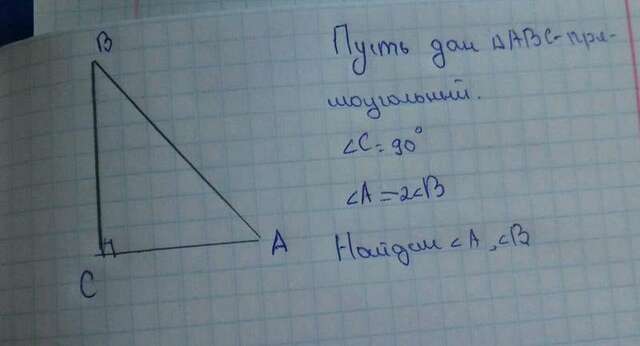 B
Пусть дан ΔABC-пря-
моугольный.
∠C=90°
∠A=2∠B
A
Найдем ∠A, ∠B
C